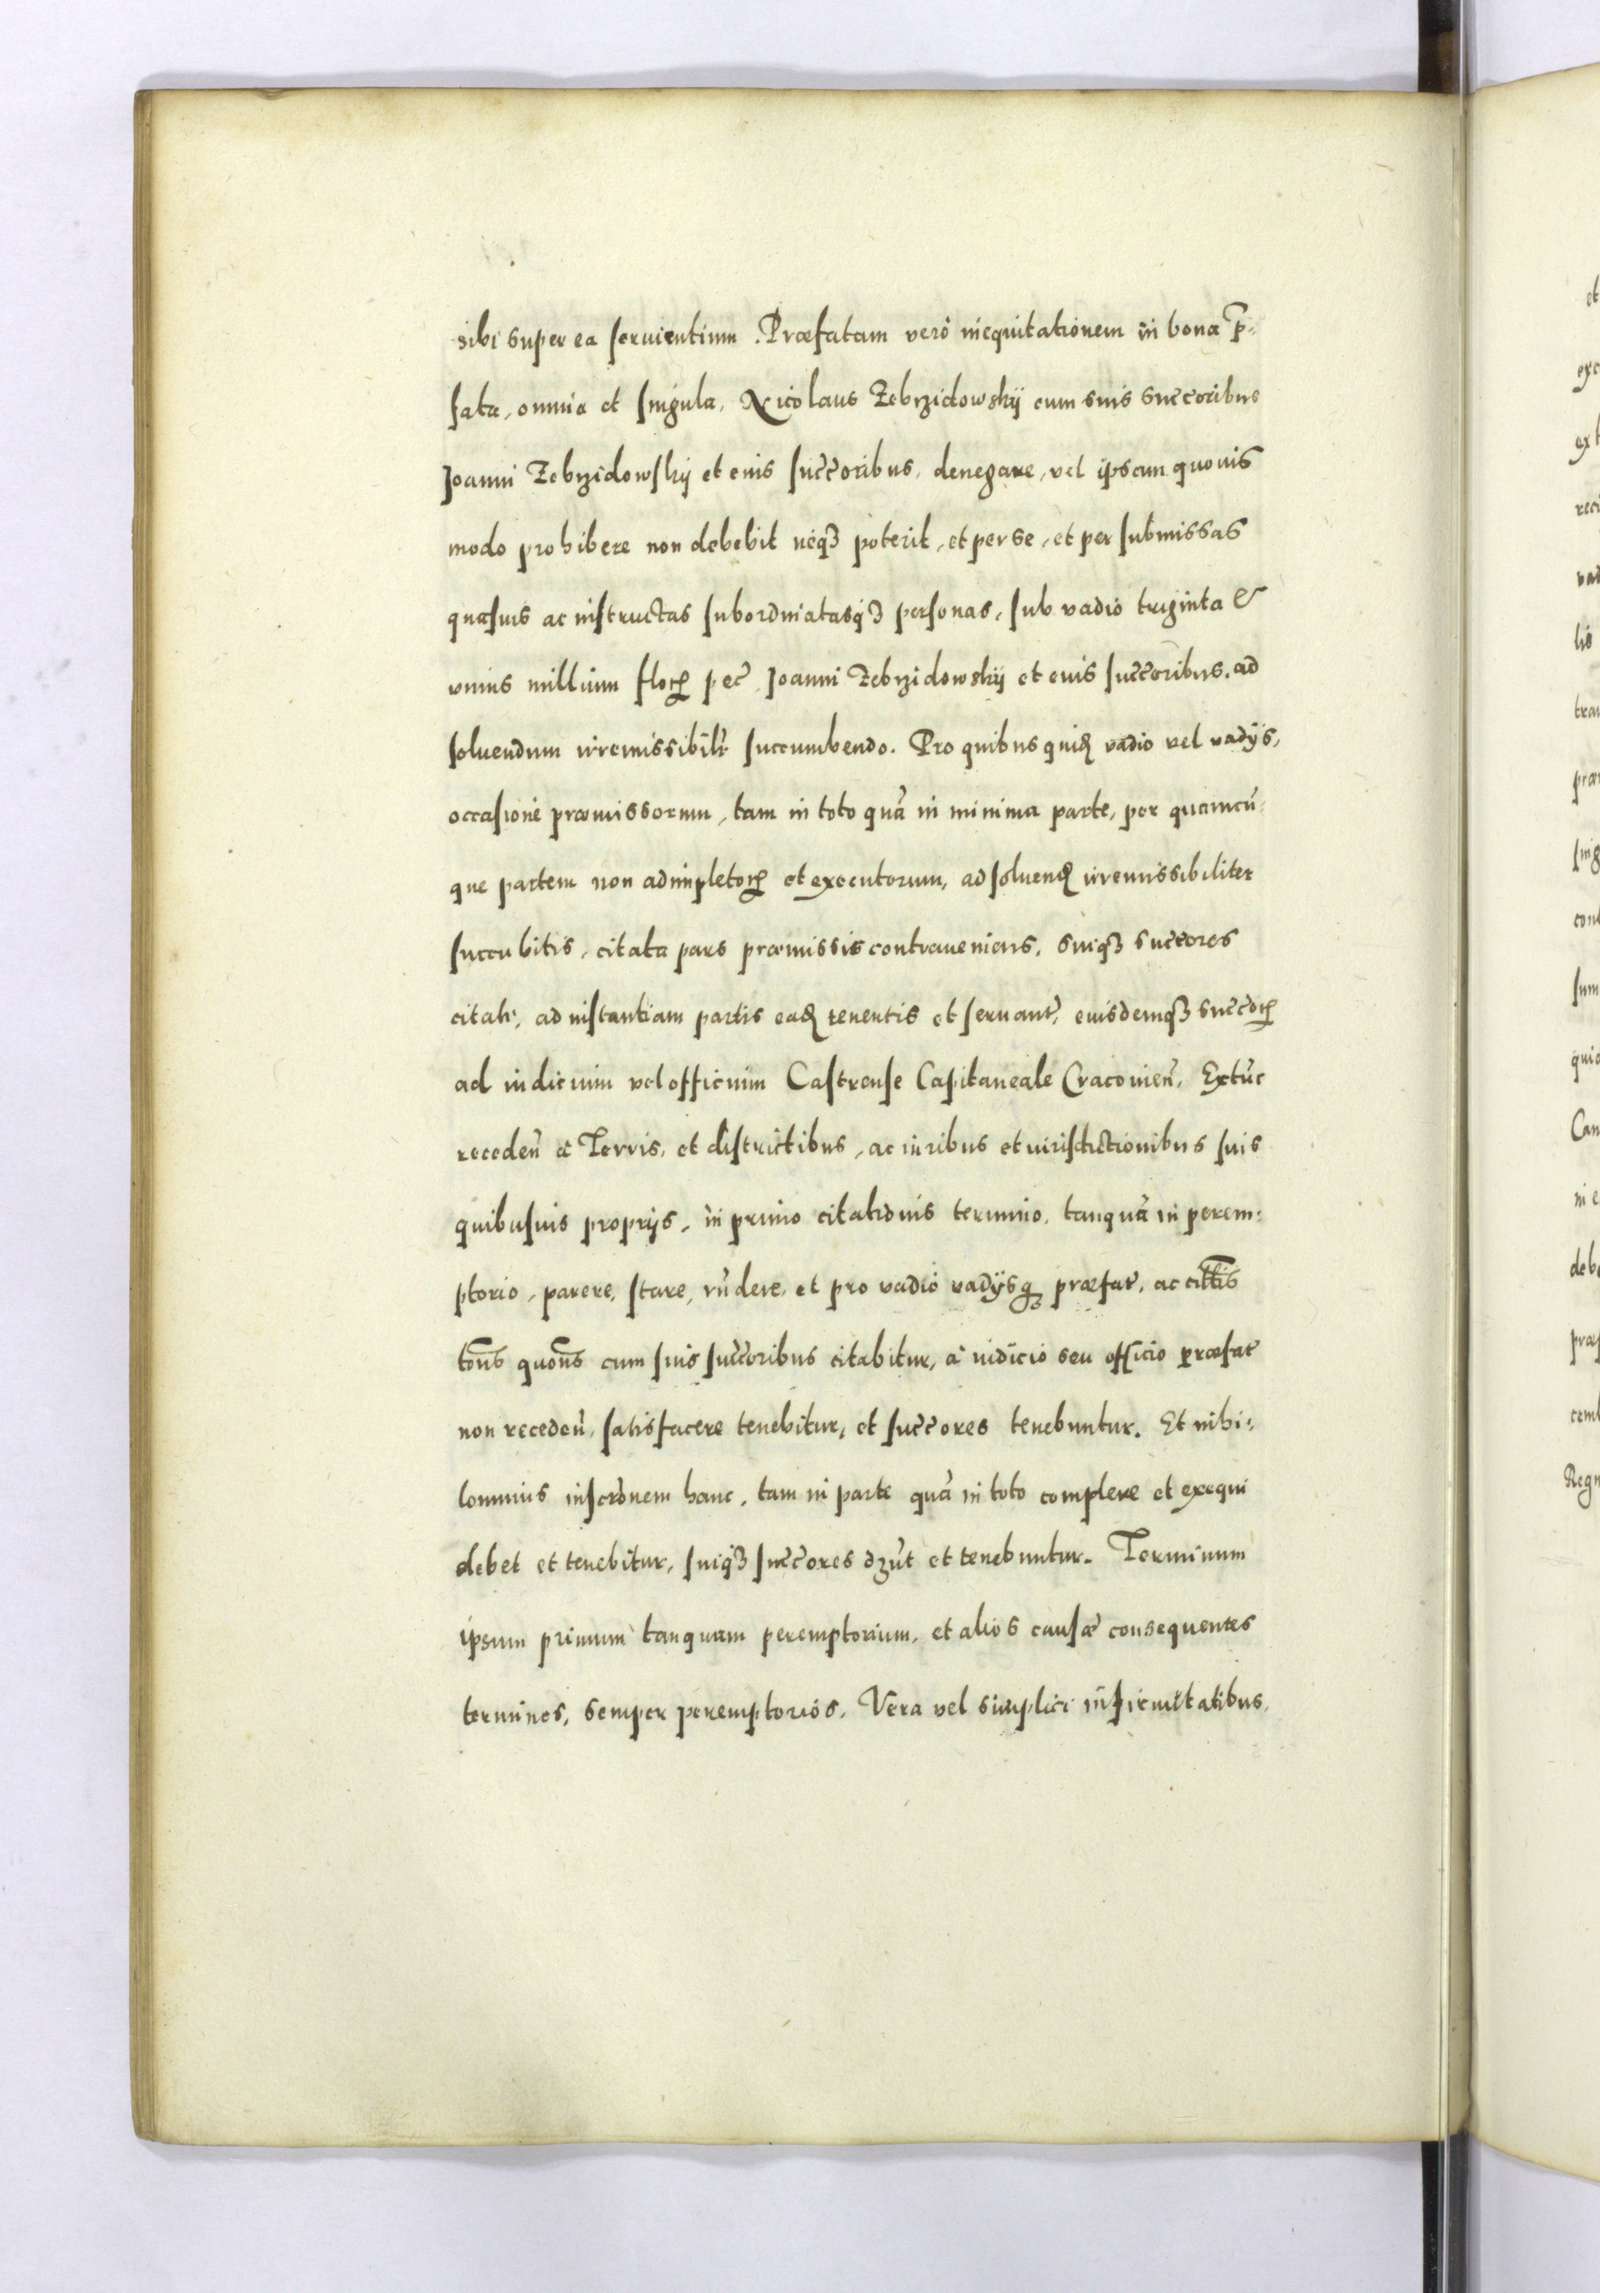 sibi super ea seruientium. Præfatam verò inequitationem in bona p̄-
fata, omnia et singula, Nicolaus Zebrzidowskij cum suis succ̄oribus
Joanni Zebrzidowskij et eius succ̄oribus, denegare, vel ipsam quouis
modo prohibere non debebit neqꝫ poterit, et per se, et per submissas
quasuis ac instructas subordinatasqꝫ personas, sub vadio triginta &
vnius millium floꝝ pec̄ Joanni Zebrzidowskij et eius succ̄oribus, ad
soluendum irremissibilr̄ succumbendo. Pro quibus quiđ vadio vel vadijs,
occasione præmissorum, tam in toto quā in minima parte, per quamcū-
que partem non adimpletoꝝ et executorum, ad soluenđ irremissibiliter
succubitis, citata pars præmissis contraueniens, suiqꝫ succ̄ores
citati, ad instantiam partis eađ tenentis et seruant̄, eiusdemqꝫ succ̄oꝝ
ad iudicium vel officium Castrense Capitaneale Cracouien̄, Extūc
receden̄ à Terris, et districtibus, ac iuribus et iurisdictionibus suis
quibusuis proprijs, in primo citationis termino, tanquā in perem:
ptorio, parere, stare, rn̄dere, et pro vadio vadijsqꝫ præfat̄, ac citt̄is
ton̄s quon̄s cum suis succ̄oribus citabitur, à iudicio seu officio præfat̄
non receden̄, satisfacere tenebitur, et succ̄ores tenebuntur. Et nihi-
lominus inscr̄onem hanc, tam in parte quā in toto complere et exequi
debet et tenebitur, suiqꝫ succ̄ores dꝫūt et tenebuntur. Terminum
ipsum primum tanquam peremptorium, et alios causæ consequentes
terminos, semper peremptorios, Vera vel simplici infirmitatibus,
et